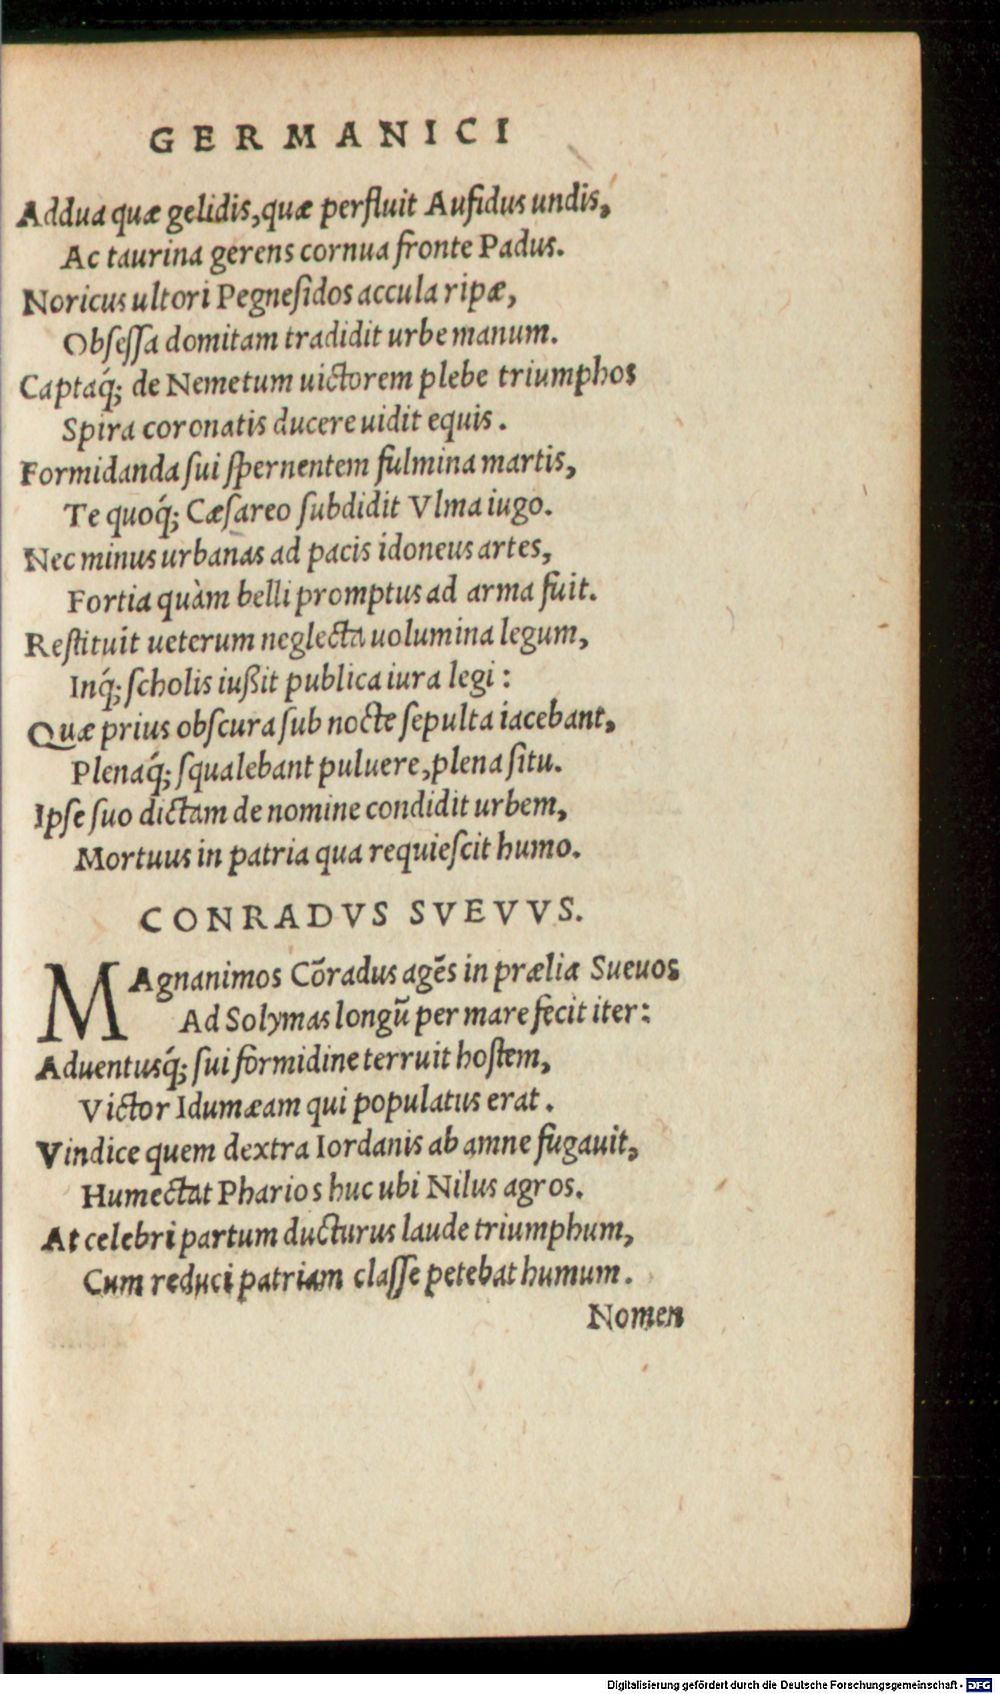 GERMANICI
Addua quæ gelidis, quæ perfluit Aufidus undis,
Ac taurina gerens cornua fronte Padus.
Noricus ultori Pegnesidos accula ripæ,
Obsessa domitam tradidit urbe manum.
Captaq́; de Nemetum uictorem plebe triumphos
Spira coronatis ducere uidit equis.
Formidanda sui spernentem fulmina martis,
Te quoq́; Cæsareo subdidit Vlma iugo.
Nec minus urbanas ad pacis idoneus artes,
Fortia quàm belli promptus ad arma fuit.
Restituit ueterum neglecta uolumina legum,
Inq́; scholis iußit publica iura legi:
Quæ prius obscura sub nocte sepulta iacebant,
Plenaq́; squalebant puluere, plena situ.
Ipse suo dictam de nomine condidit urbem,
Mortuus in patria qua requiescit humo.
CONRADVS SVEVVS.
MAgnanimos Cōradus agēs in prælia Sueuos
Ad Solymas longū per mare fecit iter:
Aduentusq́; sui formidine terruit hostem,
Victor Idumæam qui populatus erat.
Vindice quem dextra Iordanis ab amne fugauit,
Humectat Pharios huc ubi Nilus agros.
At celebri partum ducturus laude triumphum,
Cum reduci patriam classe petebat humum.
Nomen
Digitalisierung gefördert durch die Deutsche Forschungsgemeinschaft - DFG